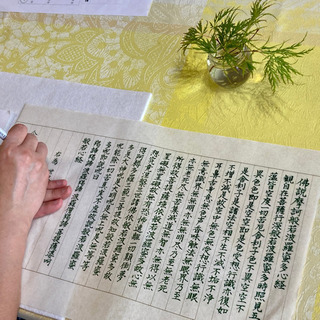 佛説摩訶般若波羅蜜多心経
観自在菩薩行深般若波羅蜜多時照見五
蘊皆空度一切苦厄舎利子色不異空空不
異色色即是空空即是色受想行識亦復如
是舎利子是諸法空相不生不滅不垢不浄
不増不減是故空中無色無受想行識無眼
耳鼻舌身意無色声香味触法無眼界乃至
無意識界無無明亦無無明尽乃至無老死
亦無老死尽無苦集滅道無智亦無得以無
所得故菩提薩埵依般若波羅蜜多故心無
罣礙無罣礙故無有恐怖遠離一切顛倒夢
想究竟涅槃三世諸佛依般若波羅蜜多故
得阿耨多羅三藐三菩提故知般若波羅蜜
多是大神呪是大明呪是無上呪是無等等
呪能除一切苦真実不虚故説般若波羅蜜
多呪即説呪曰
掲諦掲諦波羅掲諦波羅僧掲諦
般若心経